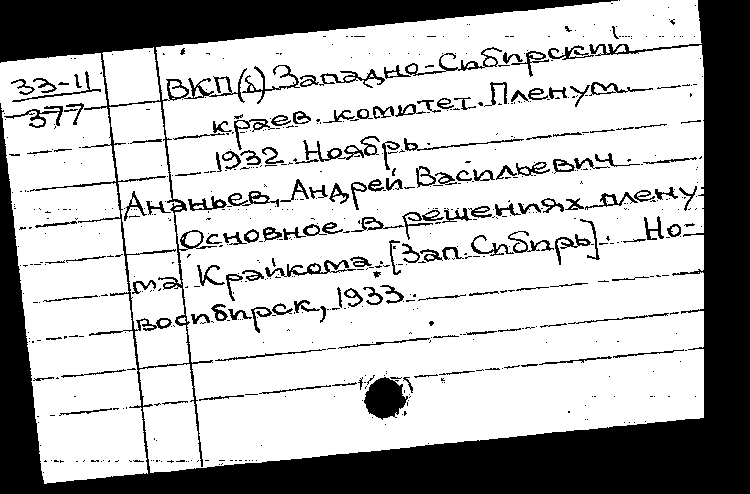 33-11
377
ВКП(б). Западно-Сибирский
краев. комитет. Пленум.
1932. Ноябрь.
Ананьев, Андрей Васильевич.
Основное в решениях плену-
ма Крайкома. [Зап. Сибирь]. Но-
восибирск, 1933.